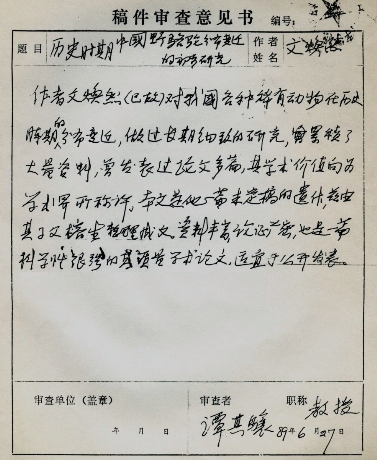 稿件审查意见书 编号:
题目 历史时期中国野马野驴分布变迁的初步研究 作者姓名 文焕然
作者文焕然(已故)对我国各种稀有动物在历史
时期的分布变迁,做过长期细致的研究,曾累积了
大量资料,曾发表过论文多篇,其学术价值向为
学术界所称许,本文是他一篇未定稿的遗作,
其子文榕生整理成文,资料丰富,论证严密,也是一篇
科学性很强的高质量学术论文,适宜于公开发表。
审查单位(盖章) 审查者 职称 教授
谭其骧 89年6月27日
年 月 日